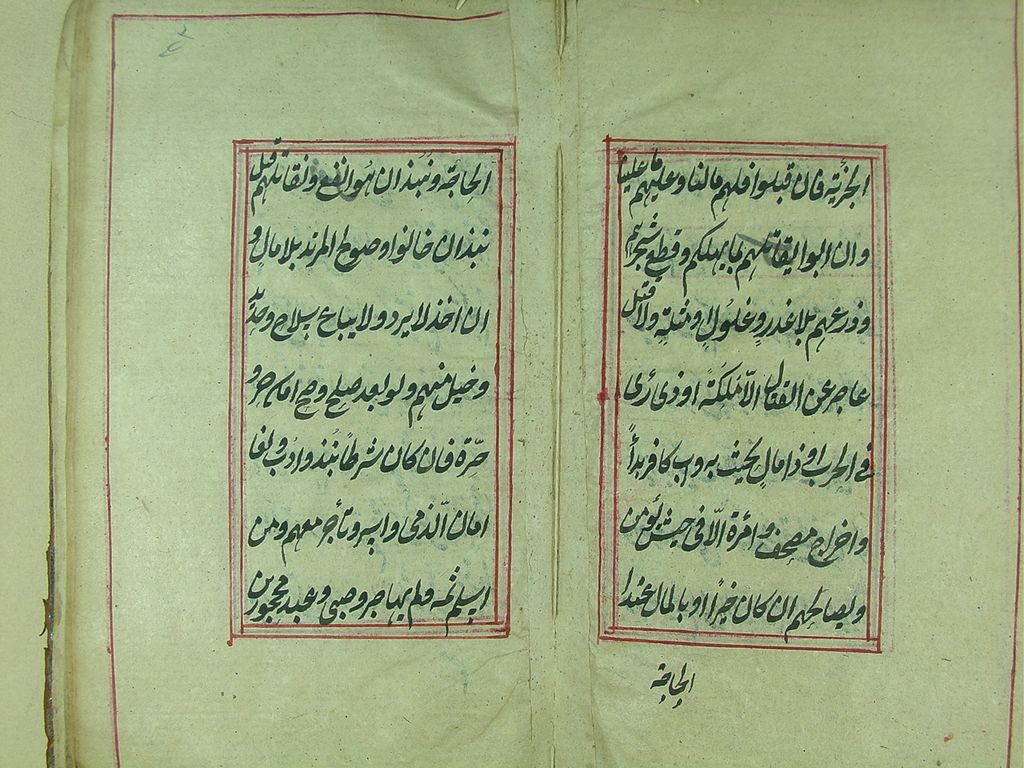 الجزية فان قبلوا فلهم مالنا وعليهم ما علينا
وان ابوا ليقاتلهم بما يهلكم وقطع شجرهم
وزرعهم بلا غدر وغلول ومثلة ولا قتل
عاجز عن القتال الا ملكة او ذي رأى
في الحرب او ذا مال يحث به واب كافر بدأ
واخراج مصحف وامرأة الا في جيش يؤمن
وليصالحهم ان كان خيرا او بالمال عند
الحاجة
الحاجة ونبذ ان هو انفع ونقاتلهم قبل
نبذ ان خانوا وصولح المرتد بلا مال و
ان اخذ لا يرد ولا يباع سلاح وحديد
وخيل منهم ولو بعد صلح وصح امان حر و
حرة فان كان شرطا نبذ وادب ولغا
امان الذمى واسير وتاجر معهم ومن
اسلم ثمه ولم يهاجر وصبى وعبد محجورين